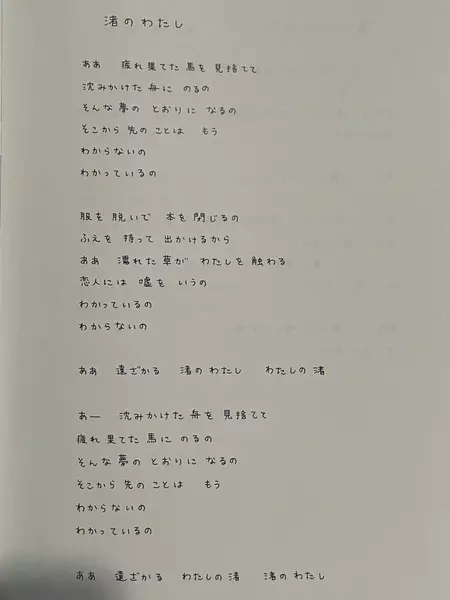 渚のわたし
ああ 疲れ果てた馬を見捨てて
沈みかけた舟に のるの
そんな夢の とおりに なるの
そこから先のことは もう
わからないの
わかっているの
服を脱いで 本を閉じるの
ふえを持って出かけるから
ああ 濡れた草が わたしを触わる
恋人には嘘を いうの
わかっているの
わからないの
ああ 遠ざかる 渚のわたし わたしの渚
あー 沈みかけた舟を見捨てて
疲れ果てた馬に のるの
そんな夢の とおりに なるの
そこから先のことは もう
わからないの
わかっているの
ああ 遠ざかる わたしの渚 渚のわたし